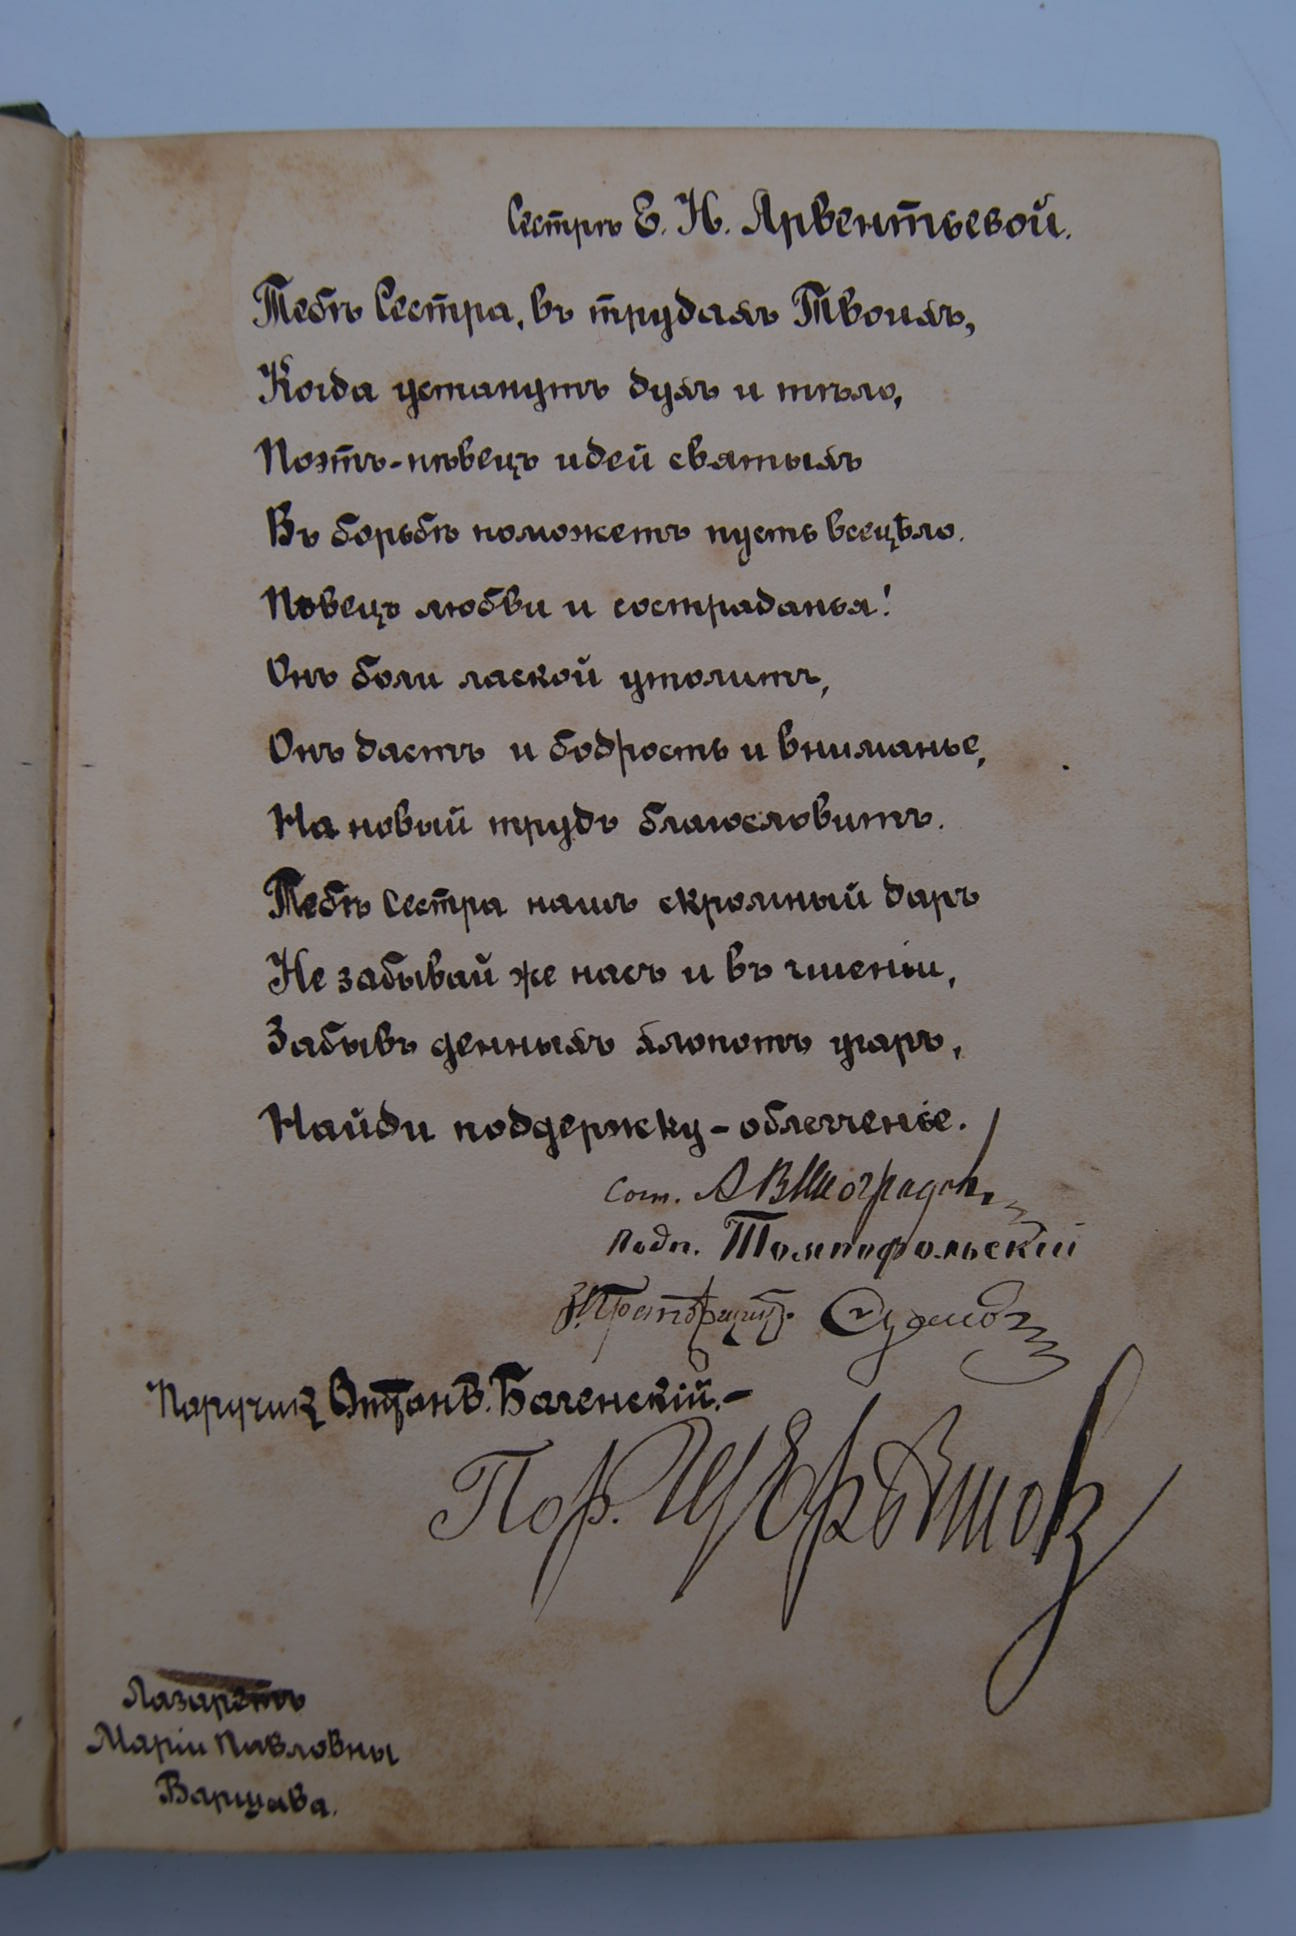 Сестрѣ Е. Н. Арвентьевой.
Тебѣ Сестра, въ трудахъ Твоихъ,
Когда устанутъ духъ и тѣло,
Поэтъ-пѣвецъ идей святыхъ
Въ борьбѣ поможетъ пусть всецѣло.
Пѣвецъ любви и состраданья!
Онъ боли лаской утолитъ,
Онъ дастъ и бодрость и вниманье,
На новый трудъ благословитъ.
Тебѣ Сестра нашъ скромный даръ
Не забывай же насъ и въ чтеніи,
Забывъ денныхъ хлопотъ угаръ,
Найди поддержку-облегченіе.
Сот. А Виноградов
Подп.
Поручик Баченскій.-
Пор.
Лазаретъ
Маріи Павловны
Варшава.